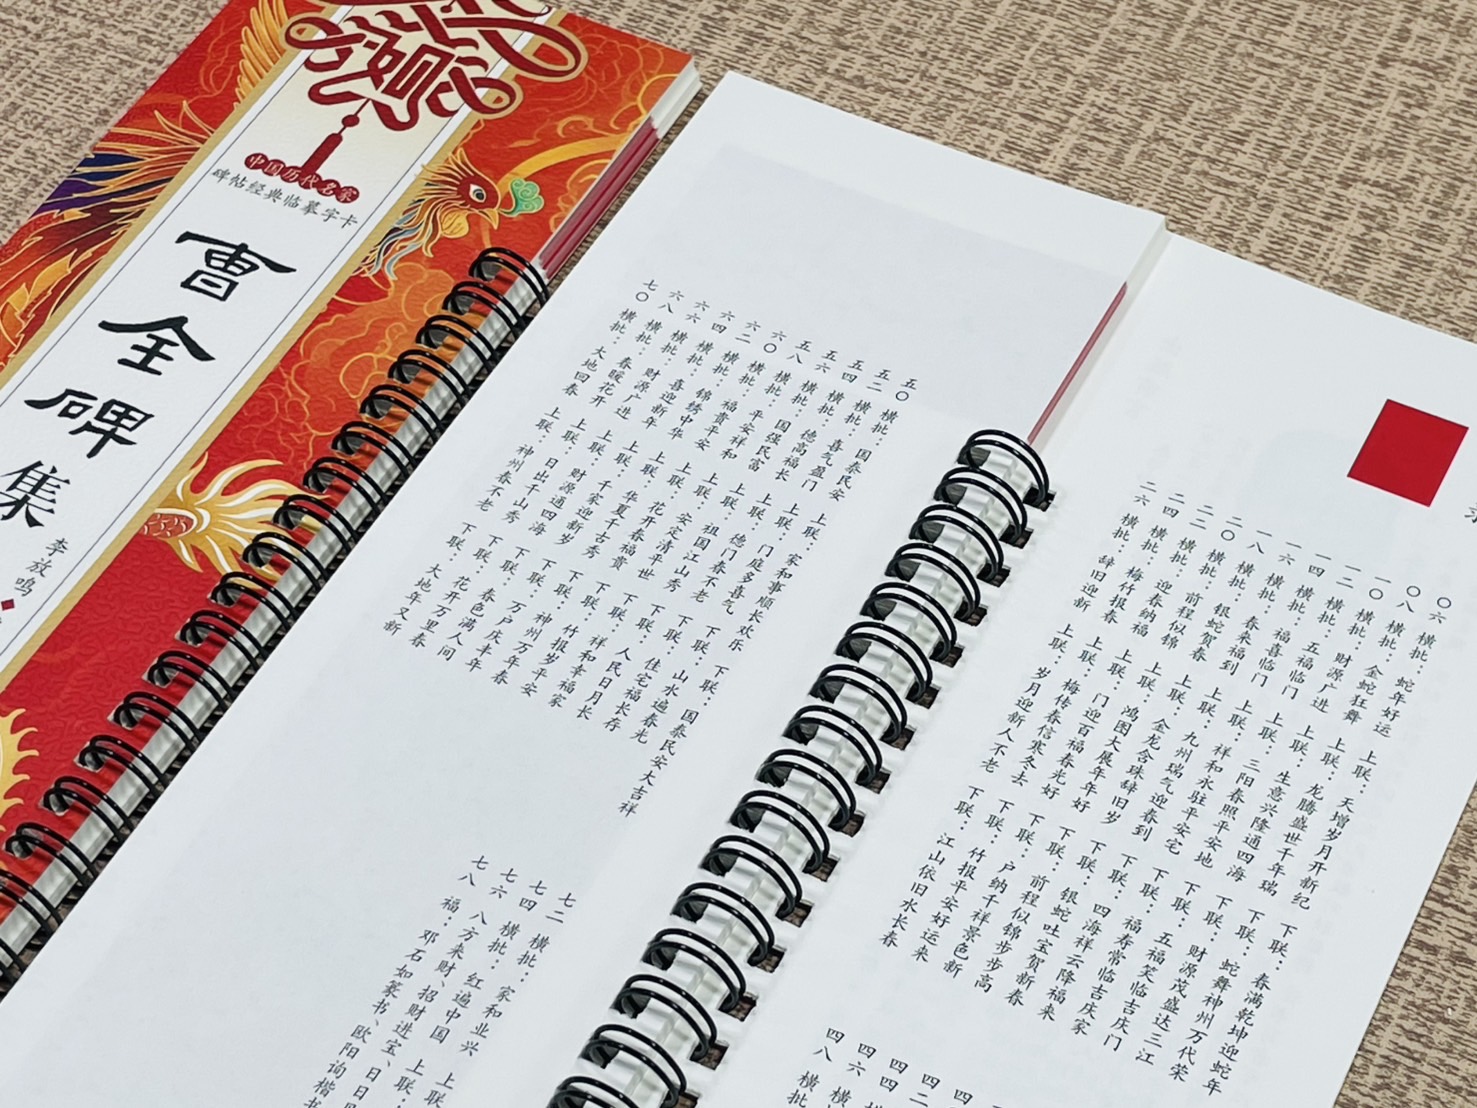 中国历代名家
碑帖经典临摹字卡
曹全碑集
李放鸣
五〇 横批：国泰民安 上联：家和事顺长欢乐 下联：国泰民安大吉祥
五二 横批：喜气盈门 上联：门庭多喜气 下联：山水遍春光
五四 横批：德高福长 上联：德门春不老 下联：佳宅福长存
五六 横批：国强民富 上联：祖国江山秀 下联：人民日月长
五八 横批：平安祥和 上联：安定清平世 下联：祥和幸福家
六〇 横批：福贵平安 上联：花开春福贵 下联：竹报岁平安
六二 横批：锦绣中华 上联：华夏千古秀 下联：神州万年春
六四 横批：喜迎新年 上联：千家迎新岁 下联：万户庆丰年
六六 横批：财源广进 上联：财源通四海 下联：春色满人间
六八 横批：春暖花开 上联：日出千山秀 下联：花开万里春
七〇 横批：大地回春 上联：神州春不老 下联：大地年又新
七二 横批：家和业兴 上联
七四 横批：红遍中国 上联：
七六 八方来财、招财进宝、日日
七八 福：邓石如篆书、欧阳询楷书
〇六 横批：蛇年好运 上联：天增岁月开新纪 下联：春满乾坤迎蛇年
〇八 横批：金蛇狂舞 上联：龙腾盛世千年瑞 下联：蛇舞神州万代荣
一〇 横批：财源广进 上联：生意兴隆通四海 下联：财源茂盛达三江
一二 横批：五福临门 上联：三阳春照平安地 下联：五福笑临吉庆门
一四 横批：福喜临门 上联：祥和永驻平安宅 下联：福寿常临吉庆家
一六 横批：春来福到 上联：九州瑞气迎春到 下联：四海祥云降福来
一八 横批：银蛇贺春 上联：金龙含珠辞旧岁 下联：银蛇吐宝贺新春
二〇 横批：前程似锦 上联：鸿图大展年年好 下联：前程似锦步步高
二二 横批：迎春纳福 上联：门迎百福春光好 下联：户纳千祥景色新
二四 横批：梅竹报春 上联：梅传春信寒冬去 下联：竹报平安好运来
二六 横批：辞旧迎新 上联：岁月迎新人不老 下联：江山依旧水长春
四二
四四
四六 横
四八 横批